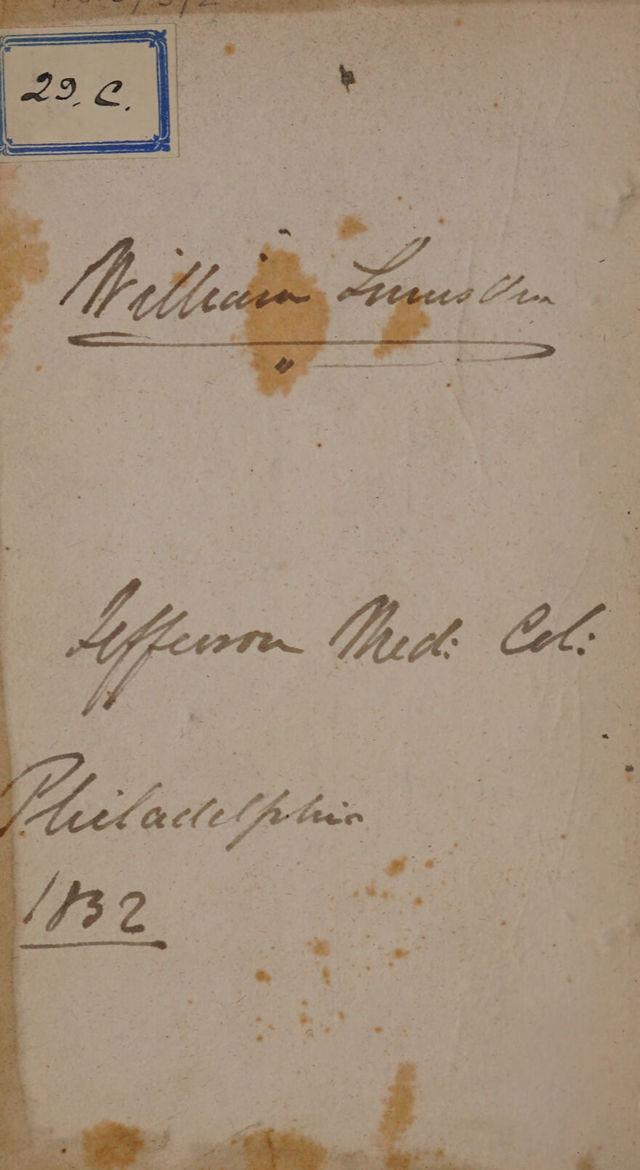 29. C.
William Lumsden
Jefferson Med: Col:
Philadelphia
1832